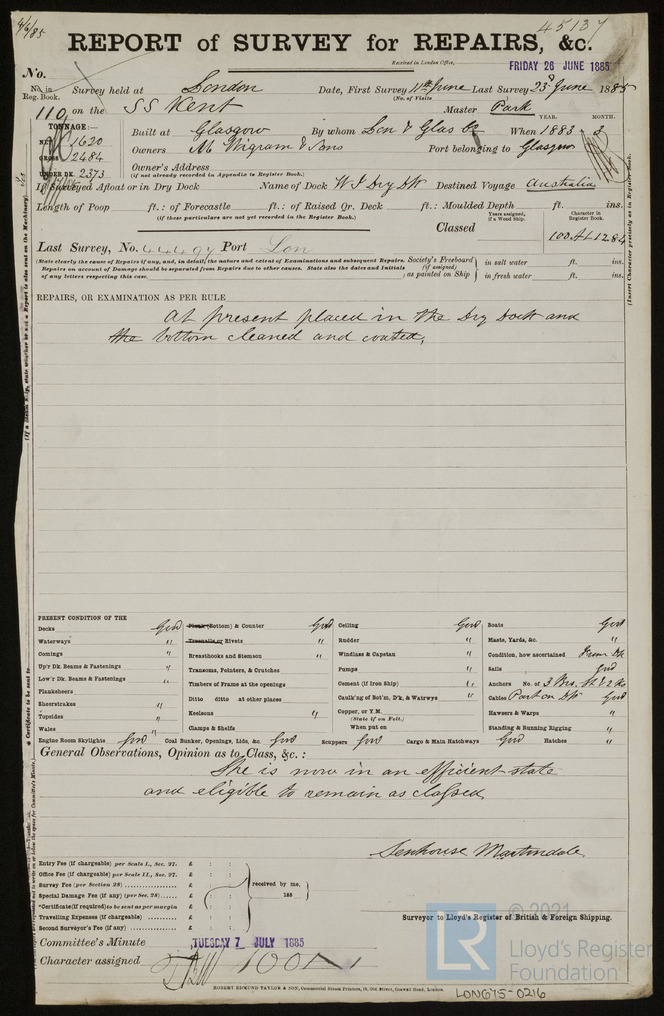 4/6/85
45137
REPORT of SURVEY for REPAIRS, &c.
Received in London Office,
FRIDAY 26 JUNE 1885
No.
No. in Reg. Book. Survey held at London Date, First Survey 11th June Last Survey 23d June 1885
(No. of Visits
119 on the SS Kent Master Park
TONNAGE:— YEAR. MONTH.
NET 1620 Built at Glasgow By whom Lon & Glas Co When 1883 2
GROSS 2484 Owners M Wigram & Sons Port belonging to Glasgow
UNDER DK. 2373 Owner's Address
(if not already recorded in Appendix to Register Book.)
If Surveyed Afloat or in Dry Dock Name of Dock W I Dry Dk Destined Voyage Australia
Length of Poop ft.: of Forecastle ft.: of Raised Qr. Deck ft.: Moulded Depth ft. ins.
(if these particulars are not yet recorded in the Register Book.)
Classed Years assigned, if a Wood Ship. Character in Register Book.
100A1 12.84
Last Survey, No. 44494 Port Lon
(State clearly the cause of Repairs if any, and, in detail, the nature and extent of Examinations and subsequent Repairs.
Repairs on account of Damage should be separated from Repairs due to other causes. State also the dates and initials
of any letters respecting this case.
Society's Freeboard (if assigned) as painted on Ship
in salt water ft. ins.
in fresh water ft. ins.
REPAIRS, OR EXAMINATION AS PER RULE
At present placed in the Dry Dock and
the bottom cleaned and coated,
PRESENT CONDITION OF THE
Decks Good
Waterways "
Comings "
Up'r Dk. Beams & Fastenings "
Low'r Dk. Beams & Fastenings "
Planksheers
Sheerstrakes "
Topsides "
Wales "
Plank (Bottom) & Counter Good
Treenails or Rivets "
Breasthooks and Stemson "
Transoms, Pointers, & Crutches
Timbers of Frame at the openings
Ditto ditto at other places
Keelsons "
Clamps & Shelfs
Ceiling Good
Rudder "
Windlass & Capstan "
Pumps "
Cement (if Iron Ship) "
Caulk'ng of Bot'm, D'k, & Watrwys "
Copper, or Y.M.
(State if on Felt.)
When put on
Boats Good
Masts, Yards, &c. "
Condition, how ascertained From Dk
Sails Good
Anchors No. of 3 Brs. St. & 2 Ks
Cables Part on Dk Good
Hawsers & Warps "
Standing & Running Rigging "
Engine Room Skylights Good Coal Bunker, Openings, Lids, &c. Good Scuppers Good Cargo & Main Hatchways Good Hatches "
General Observations, Opinion as to Class, &c.:
She is now in an efficient state
and eligible to remain as classed
Senhouse Martindale
Surveyor to Lloyd's Register of British & Foreign Shipping.
Entry Fee (if chargeable) per Scale I., Sec. 27. £ : :
Office Fee (if chargeable) per Scale II., Sec. 27. £ : :
Survey Fee (per Section 28) £ : :
Special Damage Fee (if any) (per Sec. 28) £ : :
*Certificate (if required) to be sent as per margin £ : :
Travelling Expenses (if chargeable) £ : :
Second Surveyor's Fee (if any) £ : :
received by me,
188
Committee's Minute TUESDAY 7 JULY 1885
Character assigned 100A1
ROBERT EDMUND TAYLOR & SON, Commercial Steam Printers, 19, Old Street, Goswell Road, London.
LON675-0216
© 2021
LR
Lloyd's Register
Foundation
(Insert Character precisely as in Register Book.